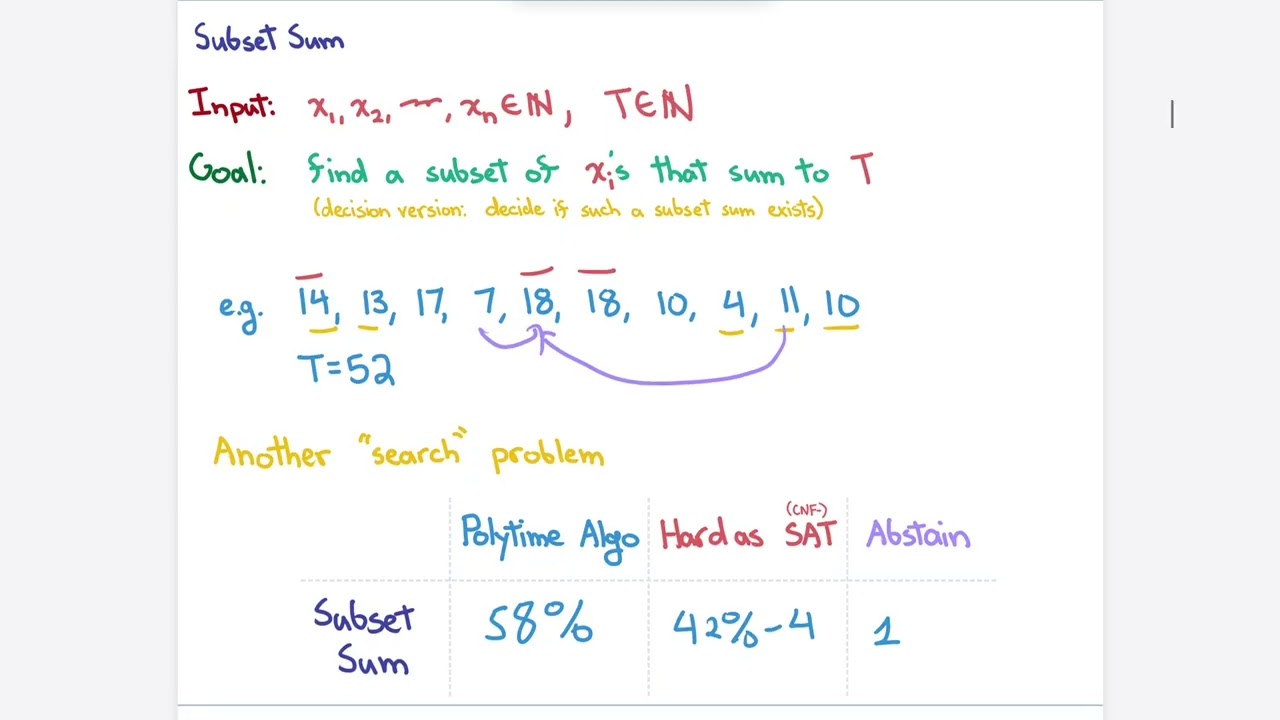 Subset Sum
Input: x₁, x₂, ⋯, xₙ ∈ ℕ, T ∈ ℕ
Goal: find a subset of xᵢ's that sum to T
(decision version: decide if such a subset sum exists)
e.g. 14, 13, 17, 7, 18, 18, 10, 4, 11, 10
T=52
Another "search" problem
Polytime Algo Hard as (CNF-) SAT Abstain
Subset Sum 58% 42%-4 1